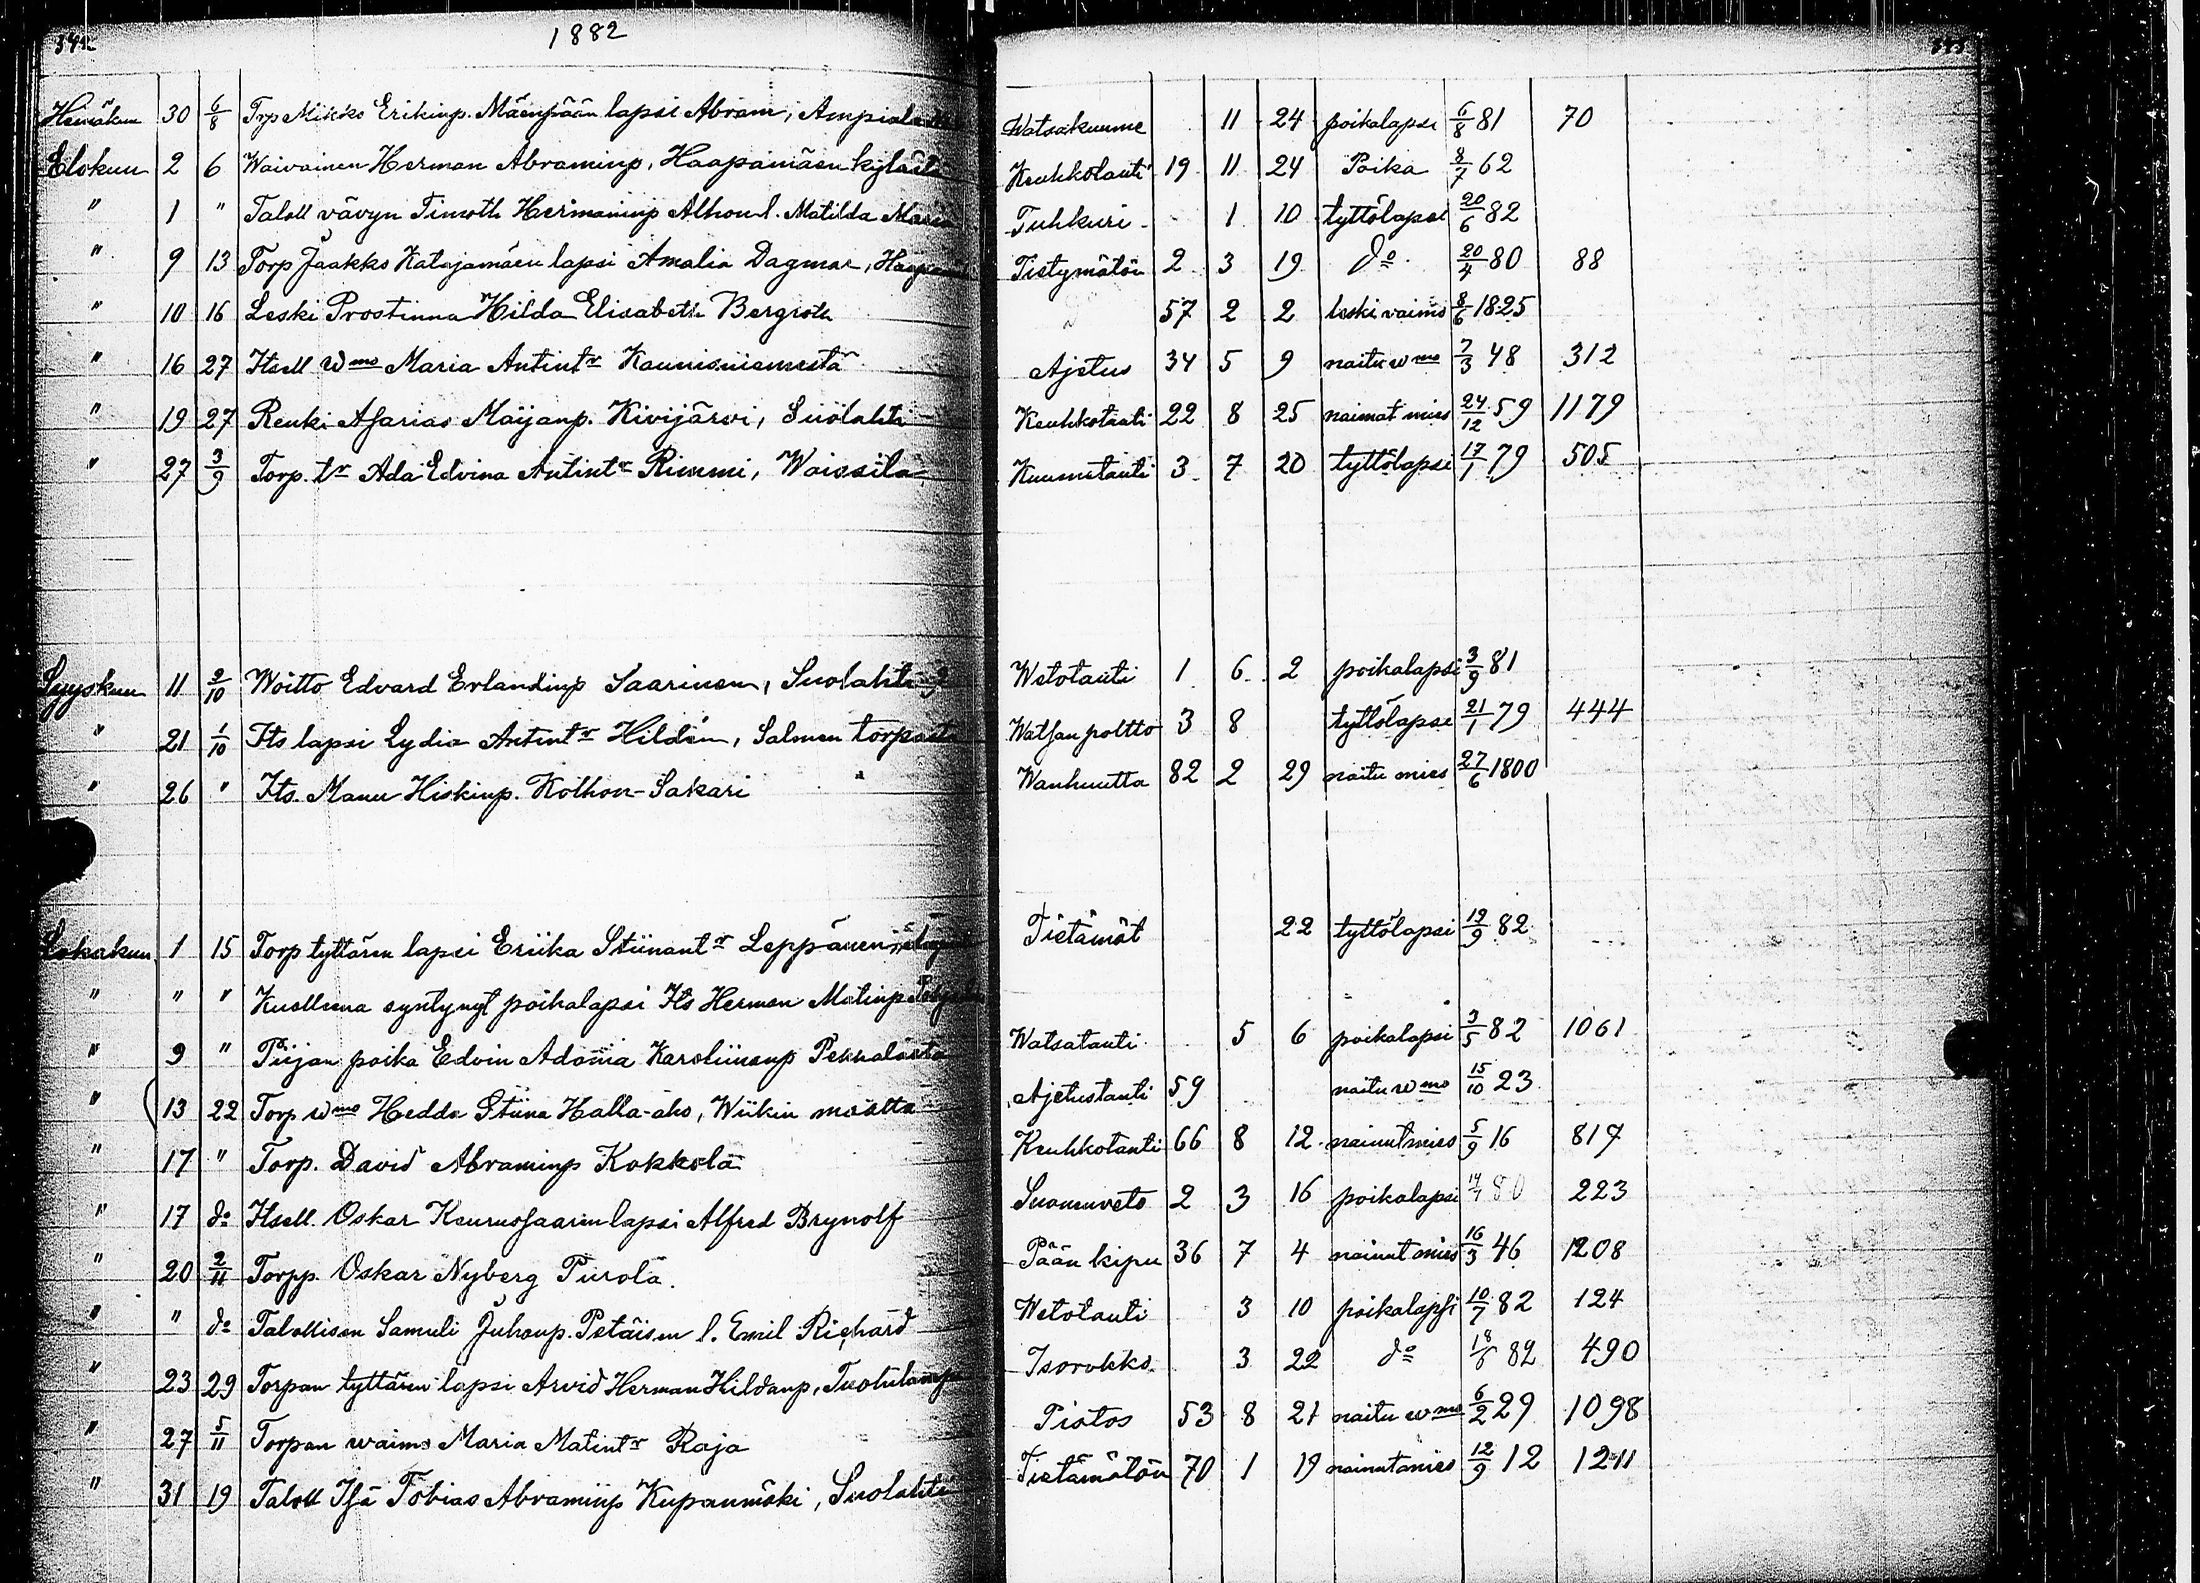 342
1882
Heinäkuu 30 6/8 Trp Mikko Erikinp. Mäenpään lapsi Abram, Ampiala Watsakuume 11 24 poikalapsi 6/8 81 70
Elokuu 2 6 Waivainen Herman Abraminp, Haapamäen kylästä Keuhkotauti 19 11 24 Poika 8/7 62
" 1 " Taloll vävyn Timoth Hermaninp Alhon l. Matilda Maria Tuhkuri 1 10 tyttölapsi 20/6 82
" 9 13 Torp Jaakko Katajamäen lapsi Amalia Dagmar, Tietymätön 2 3 19 do 20/4 80 88
" 10 16 Leski Prostinna Hilda Elisabeth Bergroth 57 2 2 leski vaimo 8/6 1825
" 16 27 Itsell Wmo Maria Antintr Kaunisniemestä Ajetus 34 5 9 naitu wmo 7/3 48 312
" 19 27 Renki Asarias Maijanp. Kivijärvi, Suolahti Keuhkotauti 22 8 25 naimat mies 24/12 59 1179
" 27 3/9 Torp. tr Ada Edvina Antintr Rimmi, Waissila Kuumetauti 3 7 20 tyttölapsi 17/1 79 505
Syyskuu 11 2/10 Woitto Edvard Erlandinp Saarinen, Suolahti Wetotauti 1 6 2 poikalapsi 3/9 81
" 21 1/10 Its lapsi Lydia Antintr Hildén, Salmen torpasta Watsan poltto 3 8 tyttölapsi 21/1 79 444
" 26 " Its. Manu Hiskinp. Kolhon-Sakari Wanhuutta 82 2 29 naitu mies 27/6 1800
Lokakuu 1 15 Torp tyttären lapsi Eriika Stiinantr Leppänen, Tietämät 22 tyttölapsi 19/9 82
" " " Kuolleena syntynyt poikalapsi Its Herman Matinp
" 9 " Piijan poika Edvin Adonia Karoliinanp Pekkalasta Watsatauti 5 6 poikalapsi 3/5 82 1061
" 13 22 Torp wmo Hedda Stiina Halla-aho, Wiikin maalta Ajetustauti 59 naitu wmo 15/10 23
" 17 " Torp. David Abraminp Kokkola Keuhkotauti 66 8 12 nainut mies 5/9 16 817
" 17 do Itsell. Oskar Keurusaaren lapsi Alfred Brynolf Suonenveto 2 3 16 poikalapsi 80 223
" 20 2/11 Torpp. Oskar Nyberg Purola. Pään kipu 36 7 4 nainut mies 16/3 46 1208
" " do Talollisen Samuli Juhonp. Petäisen l. Emil Richard Wetotauti 3 10 poikalapsi 10/7 82 124
" 23 29 Torpan tyttären lapsi Arvid Herman Hildanp, Isorokko 3 22 do 82 490
" 27 5/11 Torpan waimo Maria Matintr Raja Pistos 53 8 21 naitu wmo 6/2 29 1098
" 31 19 Taloll Isä Tobias Abraminp Kupanmäki, Suolahti Tietämätön 70 1 19 nainutmies 12/9 12 1211